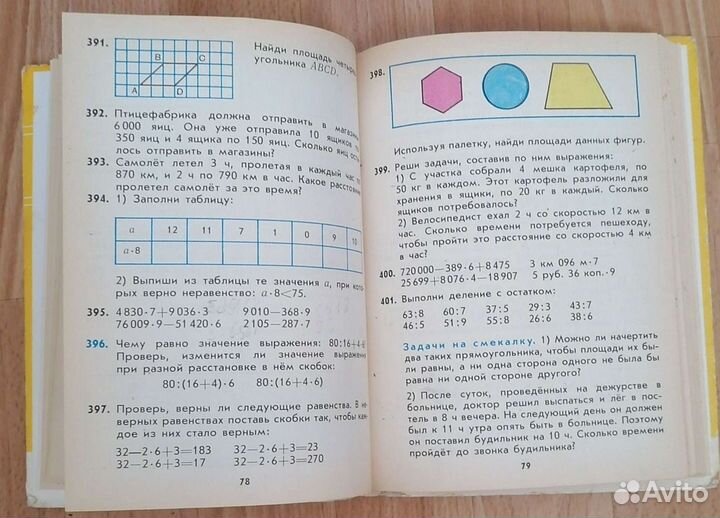 391.
B C
A D
Найди площадь четырё
угольника ABCD.
392. Птицефабрика должна отправить в магазины
6 000 яиц. Она уже отправила 10 ящиков
350 яиц и 4 ящика по 150 яиц. Сколько яиц оста
лось отправить в магазины?
393. Самолёт летел 3 ч, пролетая в каждый час по
870 км, и 2 ч по 790 км в час. Какое расстояние
пролетел самолёт за это время?
394. 1) Заполни таблицу:
a 12 11 7 1 0 9 10
a·8
2) Выпиши из таблицы те значения a, при кото
рых верно неравенство: a·8<75.
395. 4 830·7+9 036·3 9 010—368·9
76 009·9—51 420·6 2 105—287·7
396. Чему равно значение выражения: 80:16+4·6
Проверь, изменится ли значение выражения
при разной расстановке в нём скобок:
80:(16+4)·6 80:(16+4·6)
397. Проверь, верны ли следующие равенства. В не
верных равенствах поставь скобки так, чтобы каж
дое из них стало верным:
32—2·6+3=183 32—2·6+3=23
32—2·6+3=17 32—2·6+3=270
78
398.
Используя палетку, найди площади данных фигур.
399. Реши задачи, составив по ним выражения:
1) С участка собрали 4 мешка картофеля, по
50 кг в каждом. Этот картофель разложили для
хранения в ящики, по 20 кг в каждый. Сколько
ящиков потребовалось?
2) Велосипедист ехал 2 ч со скоростью 12 км в
час. Сколько времени потребуется пешеходу,
чтобы пройти это расстояние со скоростью 4 км
в час?
400. 720 000—389·6+8 475 3 км 096 м·7
25 699+8 076·4—18 907 5 руб. 36 коп.·9
401. Выполни деление с остатком:
63:8 60:7 37:5 29:3 43:7
46:5 51:9 55:8 26:6 38:6
Задачи на смекалку. 1) Можно ли начертить
два таких прямоугольника, чтобы площади их бы-
ли равны, а ни одна сторона одного не была бы
равна ни одной стороне другого?
2) После суток, проведённых на дежурстве в
больнице, доктор решил выспаться и лёг в пос-
тель в 8 ч вечера. На следующий день он должен
был к 11 ч утра опять быть в больнице. Поэтому
он поставил будильник на 10 ч. Сколько времени
пройдёт до звонка будильника?
79
Avito